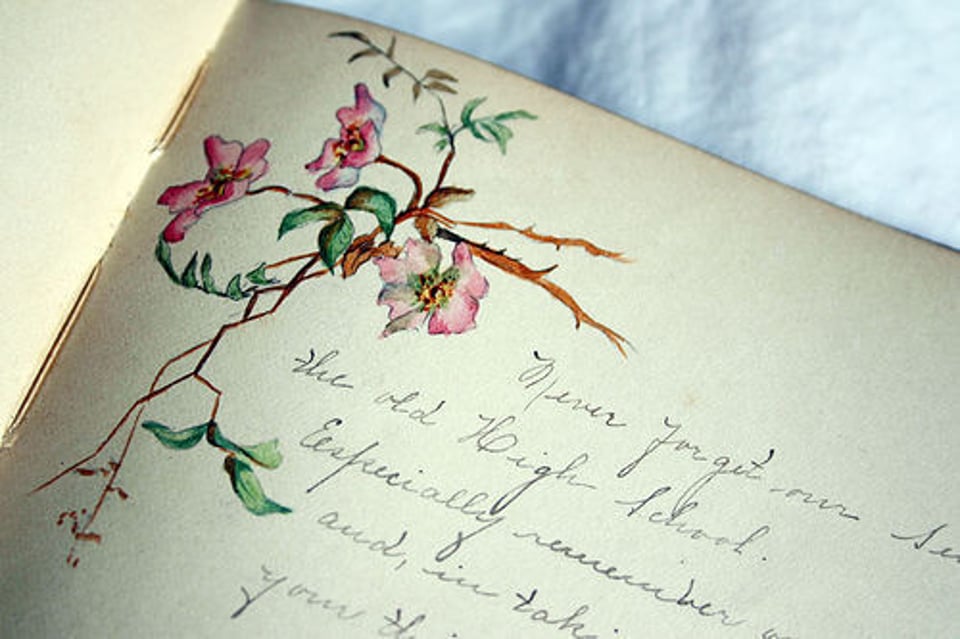 Never forget our
the old High School.
Eespecially remember
and, in
your